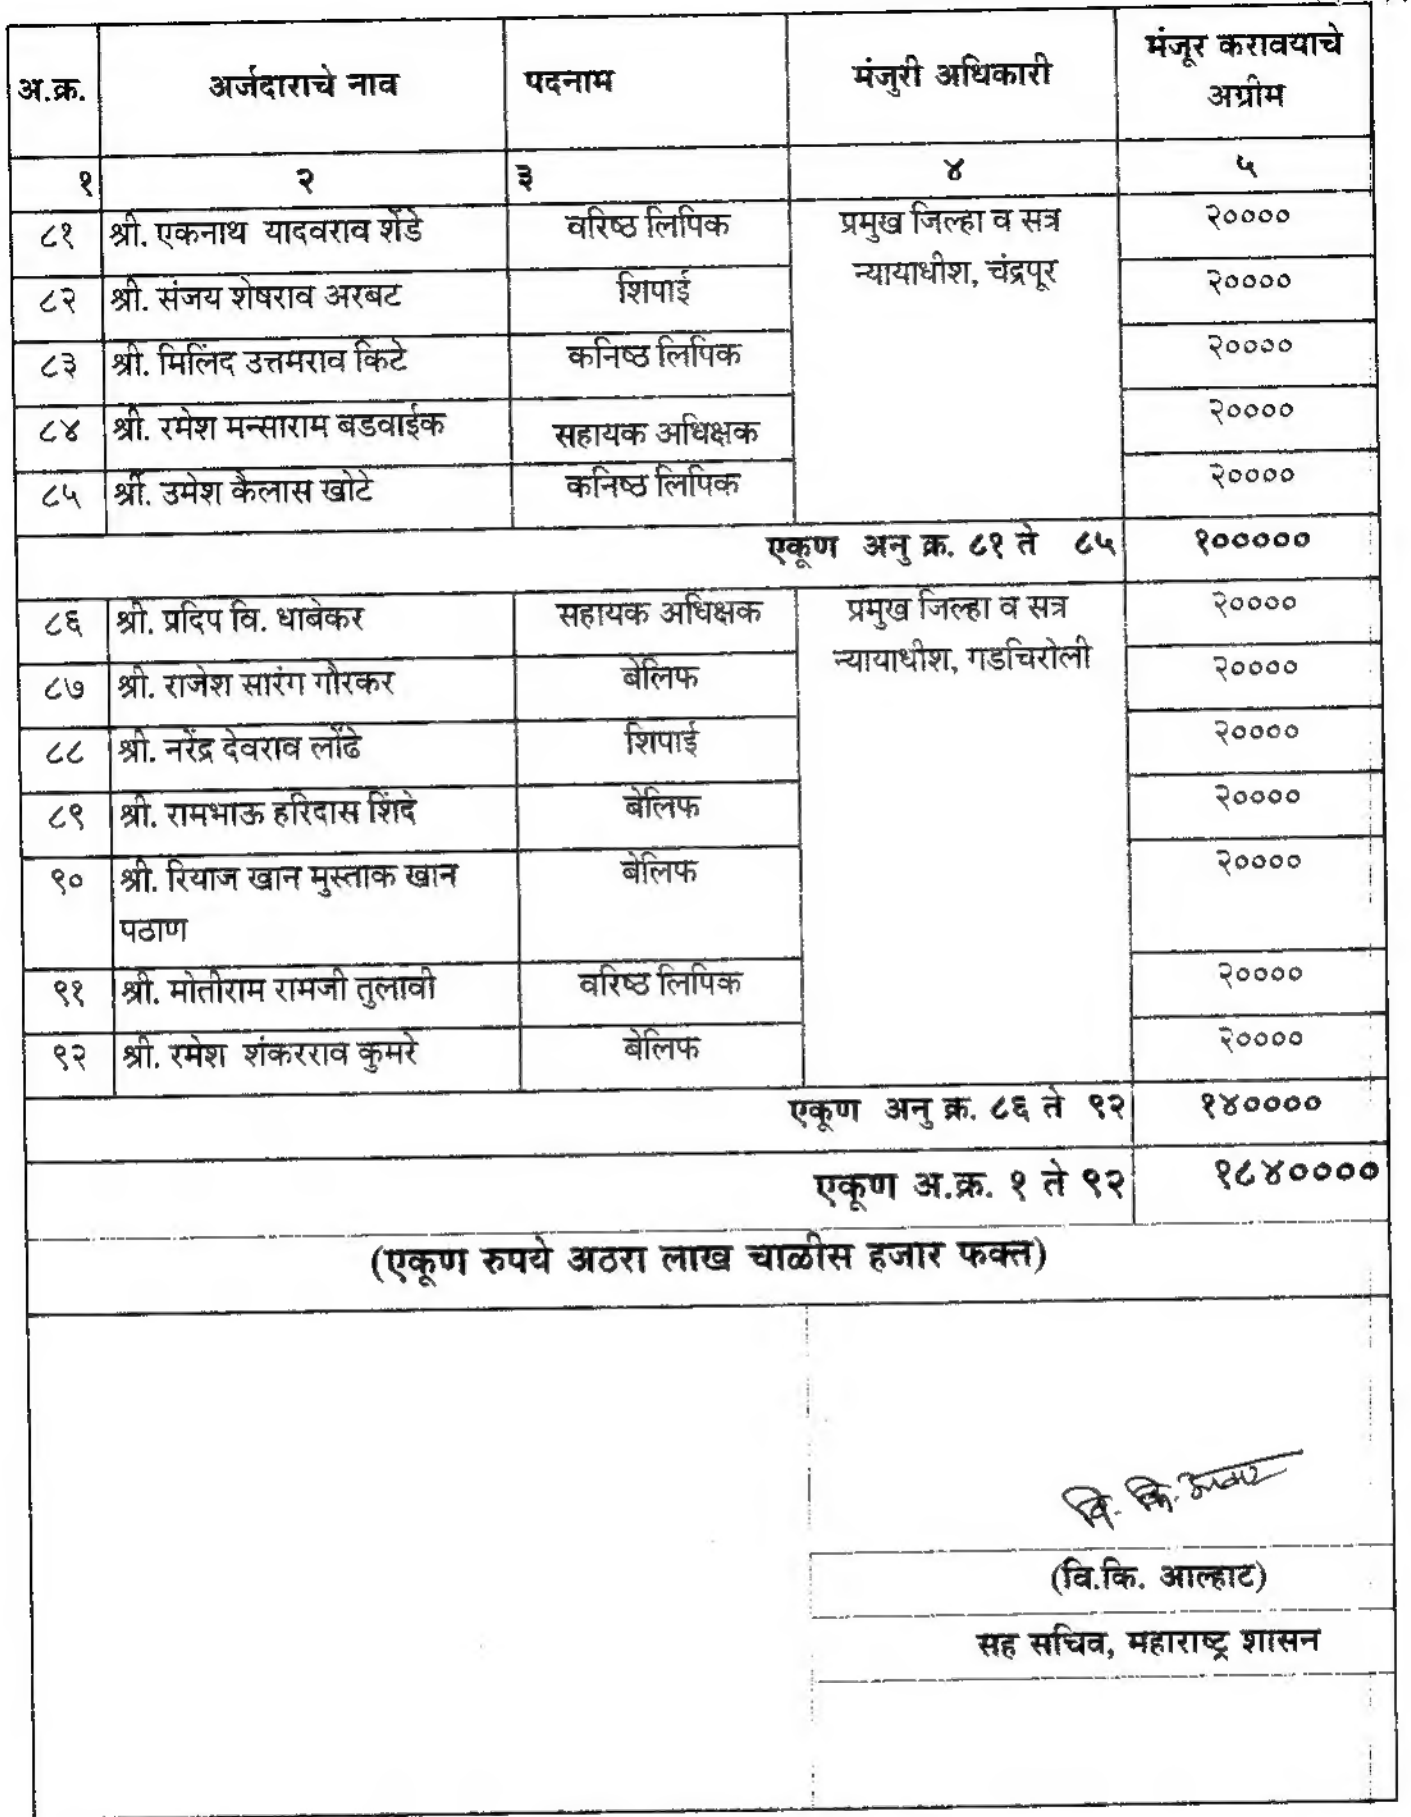 अ.क्र. अर्जदाराचे नाव पदनाम मंजुरी अधिकारी मंजूर करावयाचे अग्रीम
१ २ ३ ४ ५
८१ श्री. एकनाथ यादवराव शेंडे वरिष्ठ लिपिक प्रमुख जिल्हा व सत्र न्यायाधीश, चंद्रपूर २००००
८२ श्री. संजय शेषराव अरबट शिपाई २००००
८३ श्री. मिलिंद उत्तमराव किटे कनिष्ठ लिपिक २००००
८४ श्री. रमेश मन्साराम बडवाईक सहायक अधिक्षक २००००
८५ श्री. उमेश कैलास खोटे कनिष्ठ लिपिक २००००
एकूण अनु क्र. ८१ ते ८५ १०००००
८६ श्री. प्रदिप वि. धाबेकर सहायक अधिक्षक प्रमुख जिल्हा व सत्र न्यायाधीश, गडचिरोली २००००
८७ श्री. राजेश सारंग गौरकर बेलिफ २००००
८८ श्री. नरेंद्र देवराव लोंढे शिपाई २००००
८९ श्री. रामभाऊ हरिदास शिंदे बेलिफ २००००
९० श्री. रियाज खान मुस्ताक खान बेलिफ २००००
पठाण
९१ श्री. मोतीराम रामजी तुलावी वरिष्ठ लिपिक २००००
९२ श्री. रमेश शंकरराव कुमरे बेलिफ २००००
एकूण अनु क्र. ८६ ते ९२ १४००००
एकूण अ.क्र. १ ते ९२ १८४००००
(एकूण रुपये अठरा लाख चाळीस हजार फक्त)
वि. कि.
(वि.कि. आल्हाट)
सह सचिव, महाराष्ट्र शासन